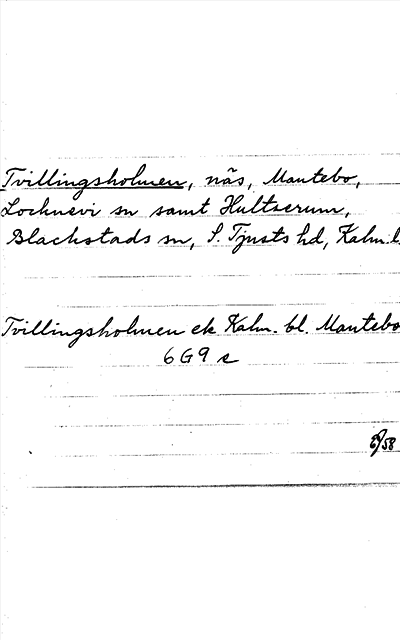 Tvillingsholmen, näs, Mantebo,
Locknevi sn samt Hultserum,
Blackstads sn, S. Tjusts hd, Kalm. l.
Tvillingsholmen ek Kalm. bl. Mantebo
6G9e
58